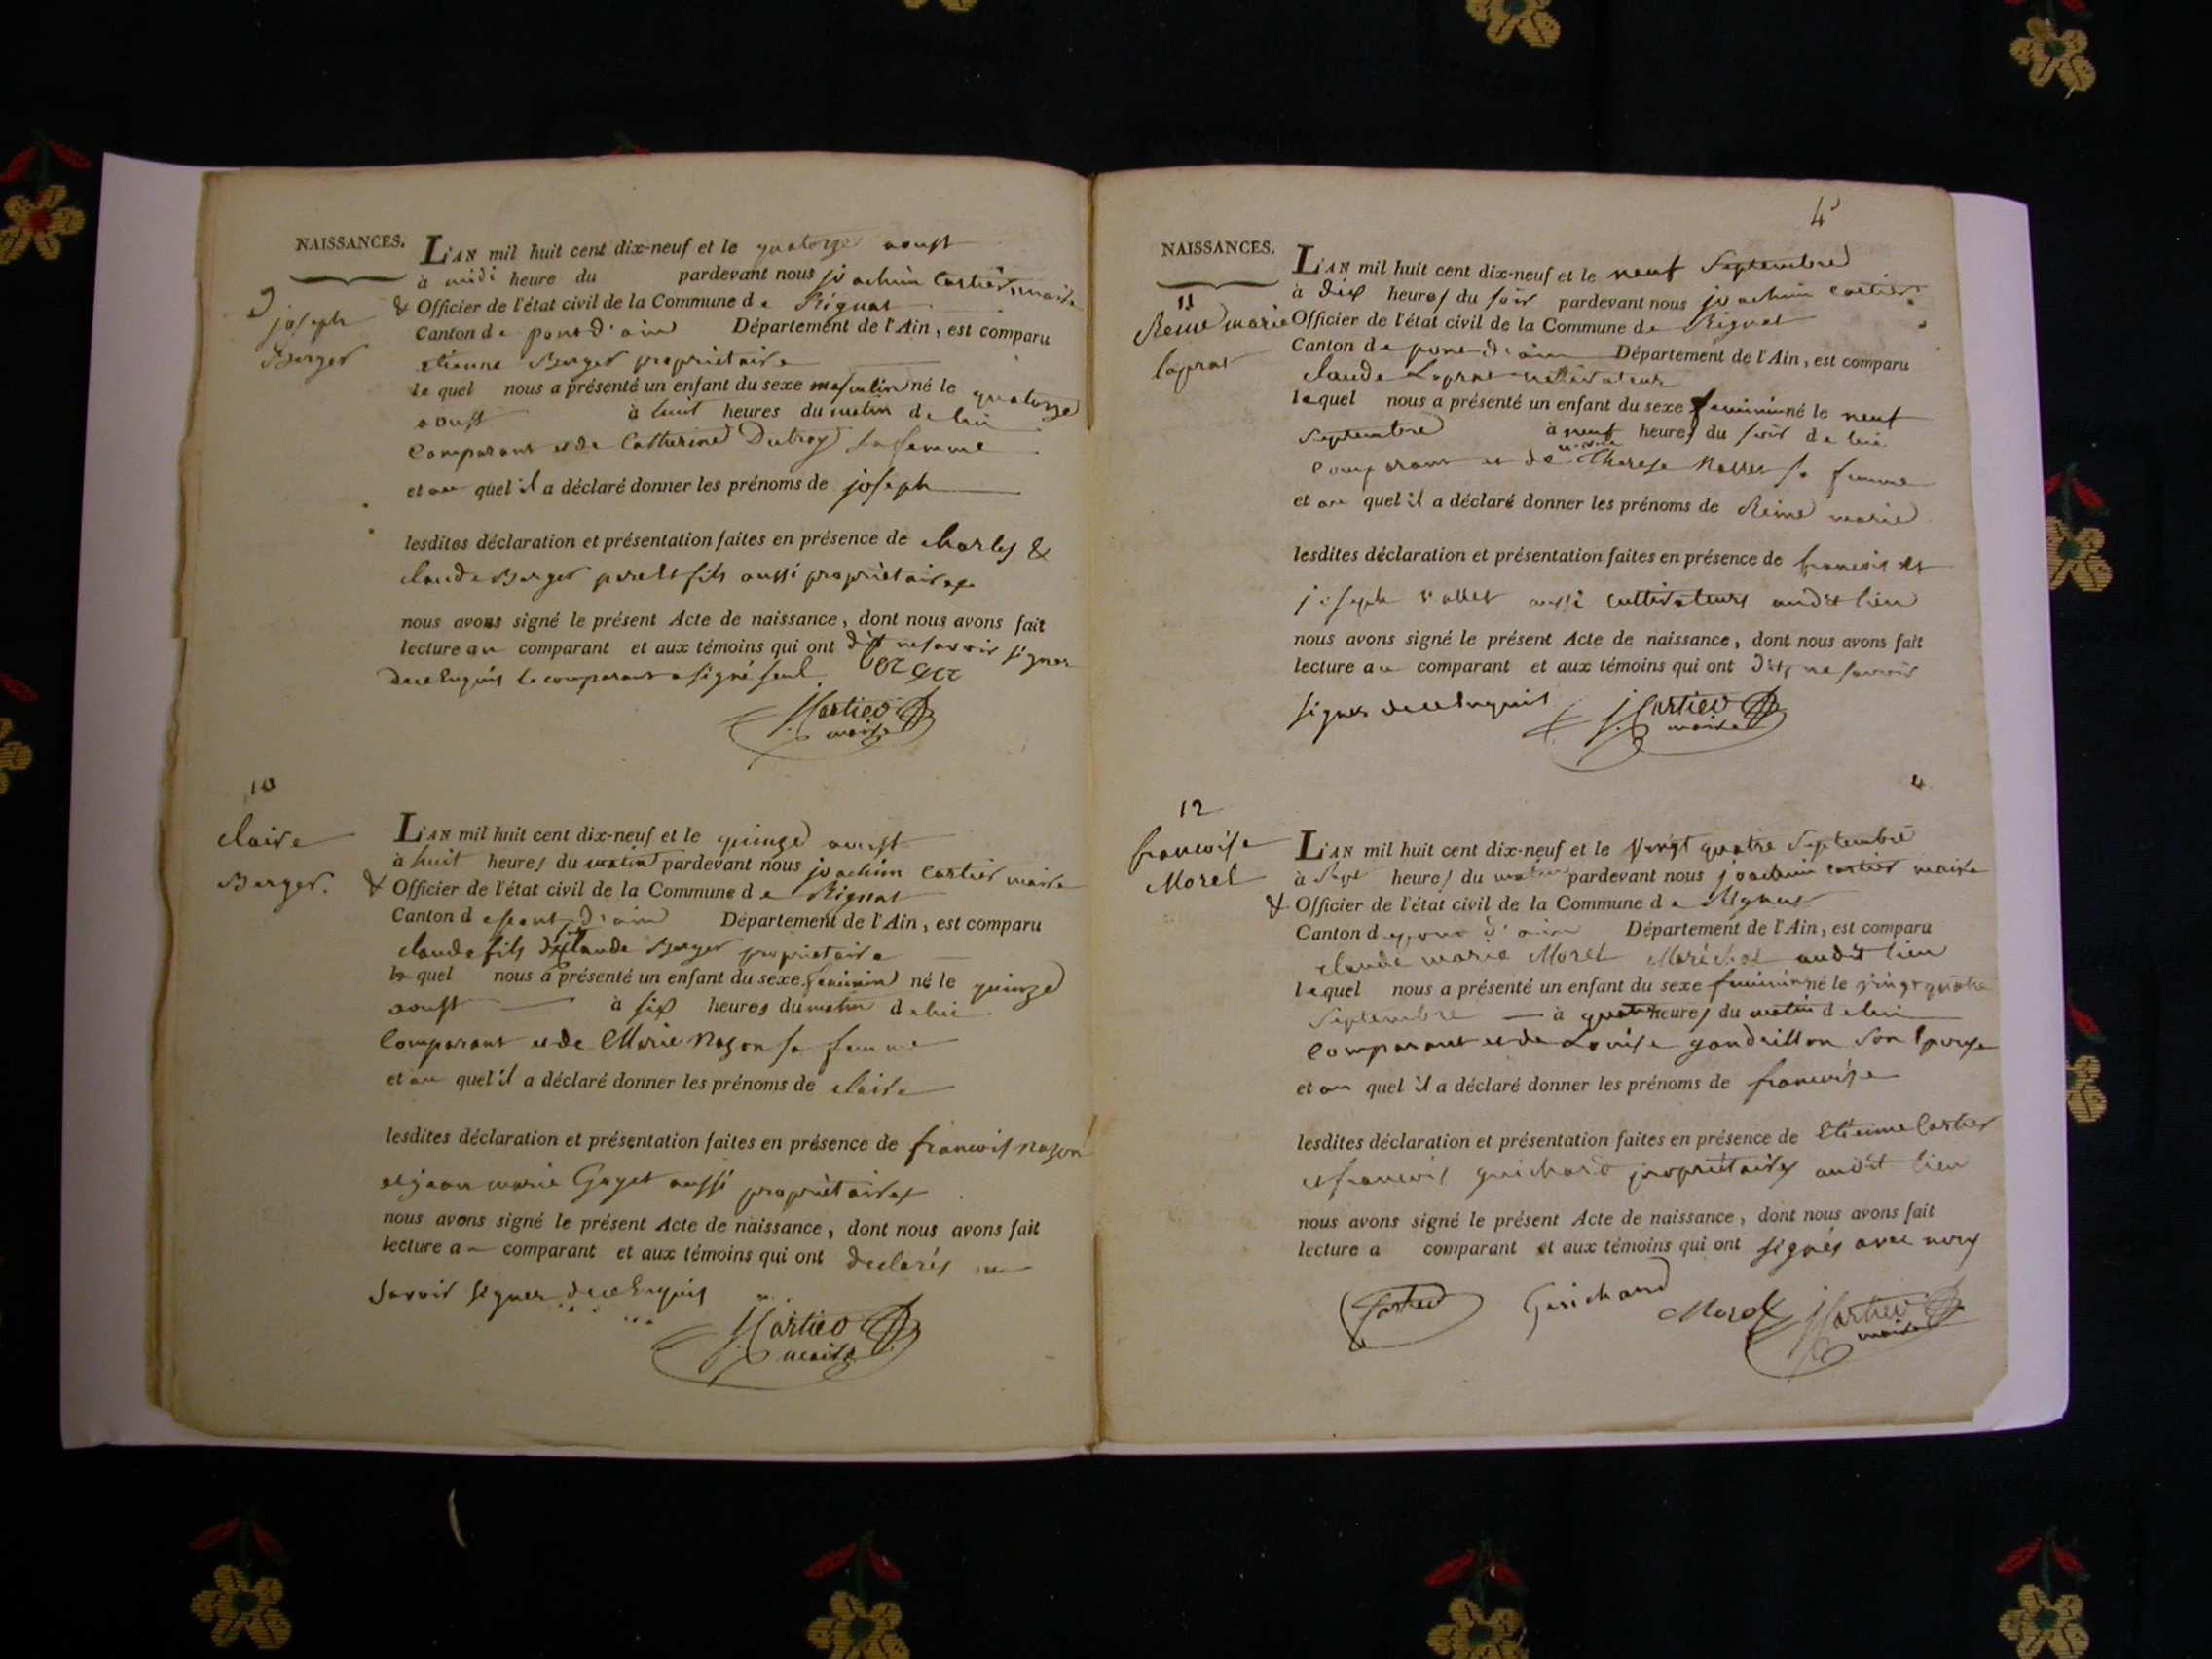 NAISSANCES.
9
joseph
Berger
L'AN mil huit cent dix-neuf et le quatorze aoust
à midi heure du pardevant nous joachim Cartier, maire
& Officier de l'état civil de la Commune de Rignat
Canton de pont d'ain Département de l'Ain, est comparu
etienne Berger propriétaire
lequel nous a présenté un enfant du sexe masculin né le quatorze
aoust à huit heures du matin de lui
Comparant et de Catherine Dubroy sa femme
et au quel il a déclaré donner les prénoms de joseph
lesdites déclaration et présentation faites en présence de charles &
claude Berger pere et fils aussi propriétaires
nous avons signé le présent Acte de naissance, dont nous avons fait
lecture au comparant et aux témoins qui ont dit ne savoir signer
de ce Enquis le comparant a signé seul. berger
J Cartier
maire
10
claire
Berger.
L'AN mil huit cent dix-neuf et le quinze aoust
à huit heures du matin pardevant nous joachim Cartier maire
& Officier de l'état civil de la Commune de Rignat
Canton de pont d'ain Département de l'Ain, est comparu
claude fils de Claude Berger propriétaire
lequel nous a présenté un enfant du sexe feminin né le quinze
aoust à six heures du matin de lui
Comparant et de Marie Nazon sa femme
et au quel il a déclaré donner les prénoms de claire
lesdites déclaration et présentation faites en présence de francois Nazon
et jean marie Goyet aussi propriétaires
nous avons signé le présent Acte de naissance, dont nous avons fait
lecture au comparant et aux témoins qui ont declarés ne
savoir signer de ce Enquis
J Cartier
maire
4
NAISSANCES.
11
Reine marie
laprat
L'AN mil huit cent dix-neuf et le neuf Septembre
à dix heures du soir pardevant nous joachim cartier
Officier de l'état civil de la Commune de Rignat
Canton de pont d'ain Département de l'Ain, est comparu
claude Laprat cultivateur
lequel nous a présenté un enfant du sexe feminin né le neuf
Septembre à neuf heures du soir de lui
Comparant et de Therese Vallet sa femme
et au quel il a déclaré donner les prénoms de Reine marie
lesdites déclaration et présentation faites en présence de francois et
joseph Vallet aussi cultivateurs audit lieu
nous avons signé le présent Acte de naissance, dont nous avons fait
lecture au comparant et aux témoins qui ont dits ne savoir
signer de ce Enquis
J Cartier
maire
12
francoise
Morel
L'AN mil huit cent dix-neuf et le Vingt quatre Septembre
à Sept heures du matin pardevant nous joachim cartier maire
& Officier de l'état civil de la Commune de Rignat
Canton de pont d'ain Département de l'Ain, est comparu
claude marie Morel Maréchal audit lieu
lequel nous a présenté un enfant du sexe feminin né le vingt quatre
Septembre à quatre heures du matin de lui
Comparant et de Louise gandrillon son Epouse
et au quel il a déclaré donner les prénoms de francoise
lesdites déclaration et présentation faites en présence de Etienne Cartier
et francois guichard propriétaires audit lieu
nous avons signé le présent Acte de naissance, dont nous avons fait
lecture a comparant et aux témoins qui ont signés avec nous
Cartier Guichard Morel J Cartier
maire